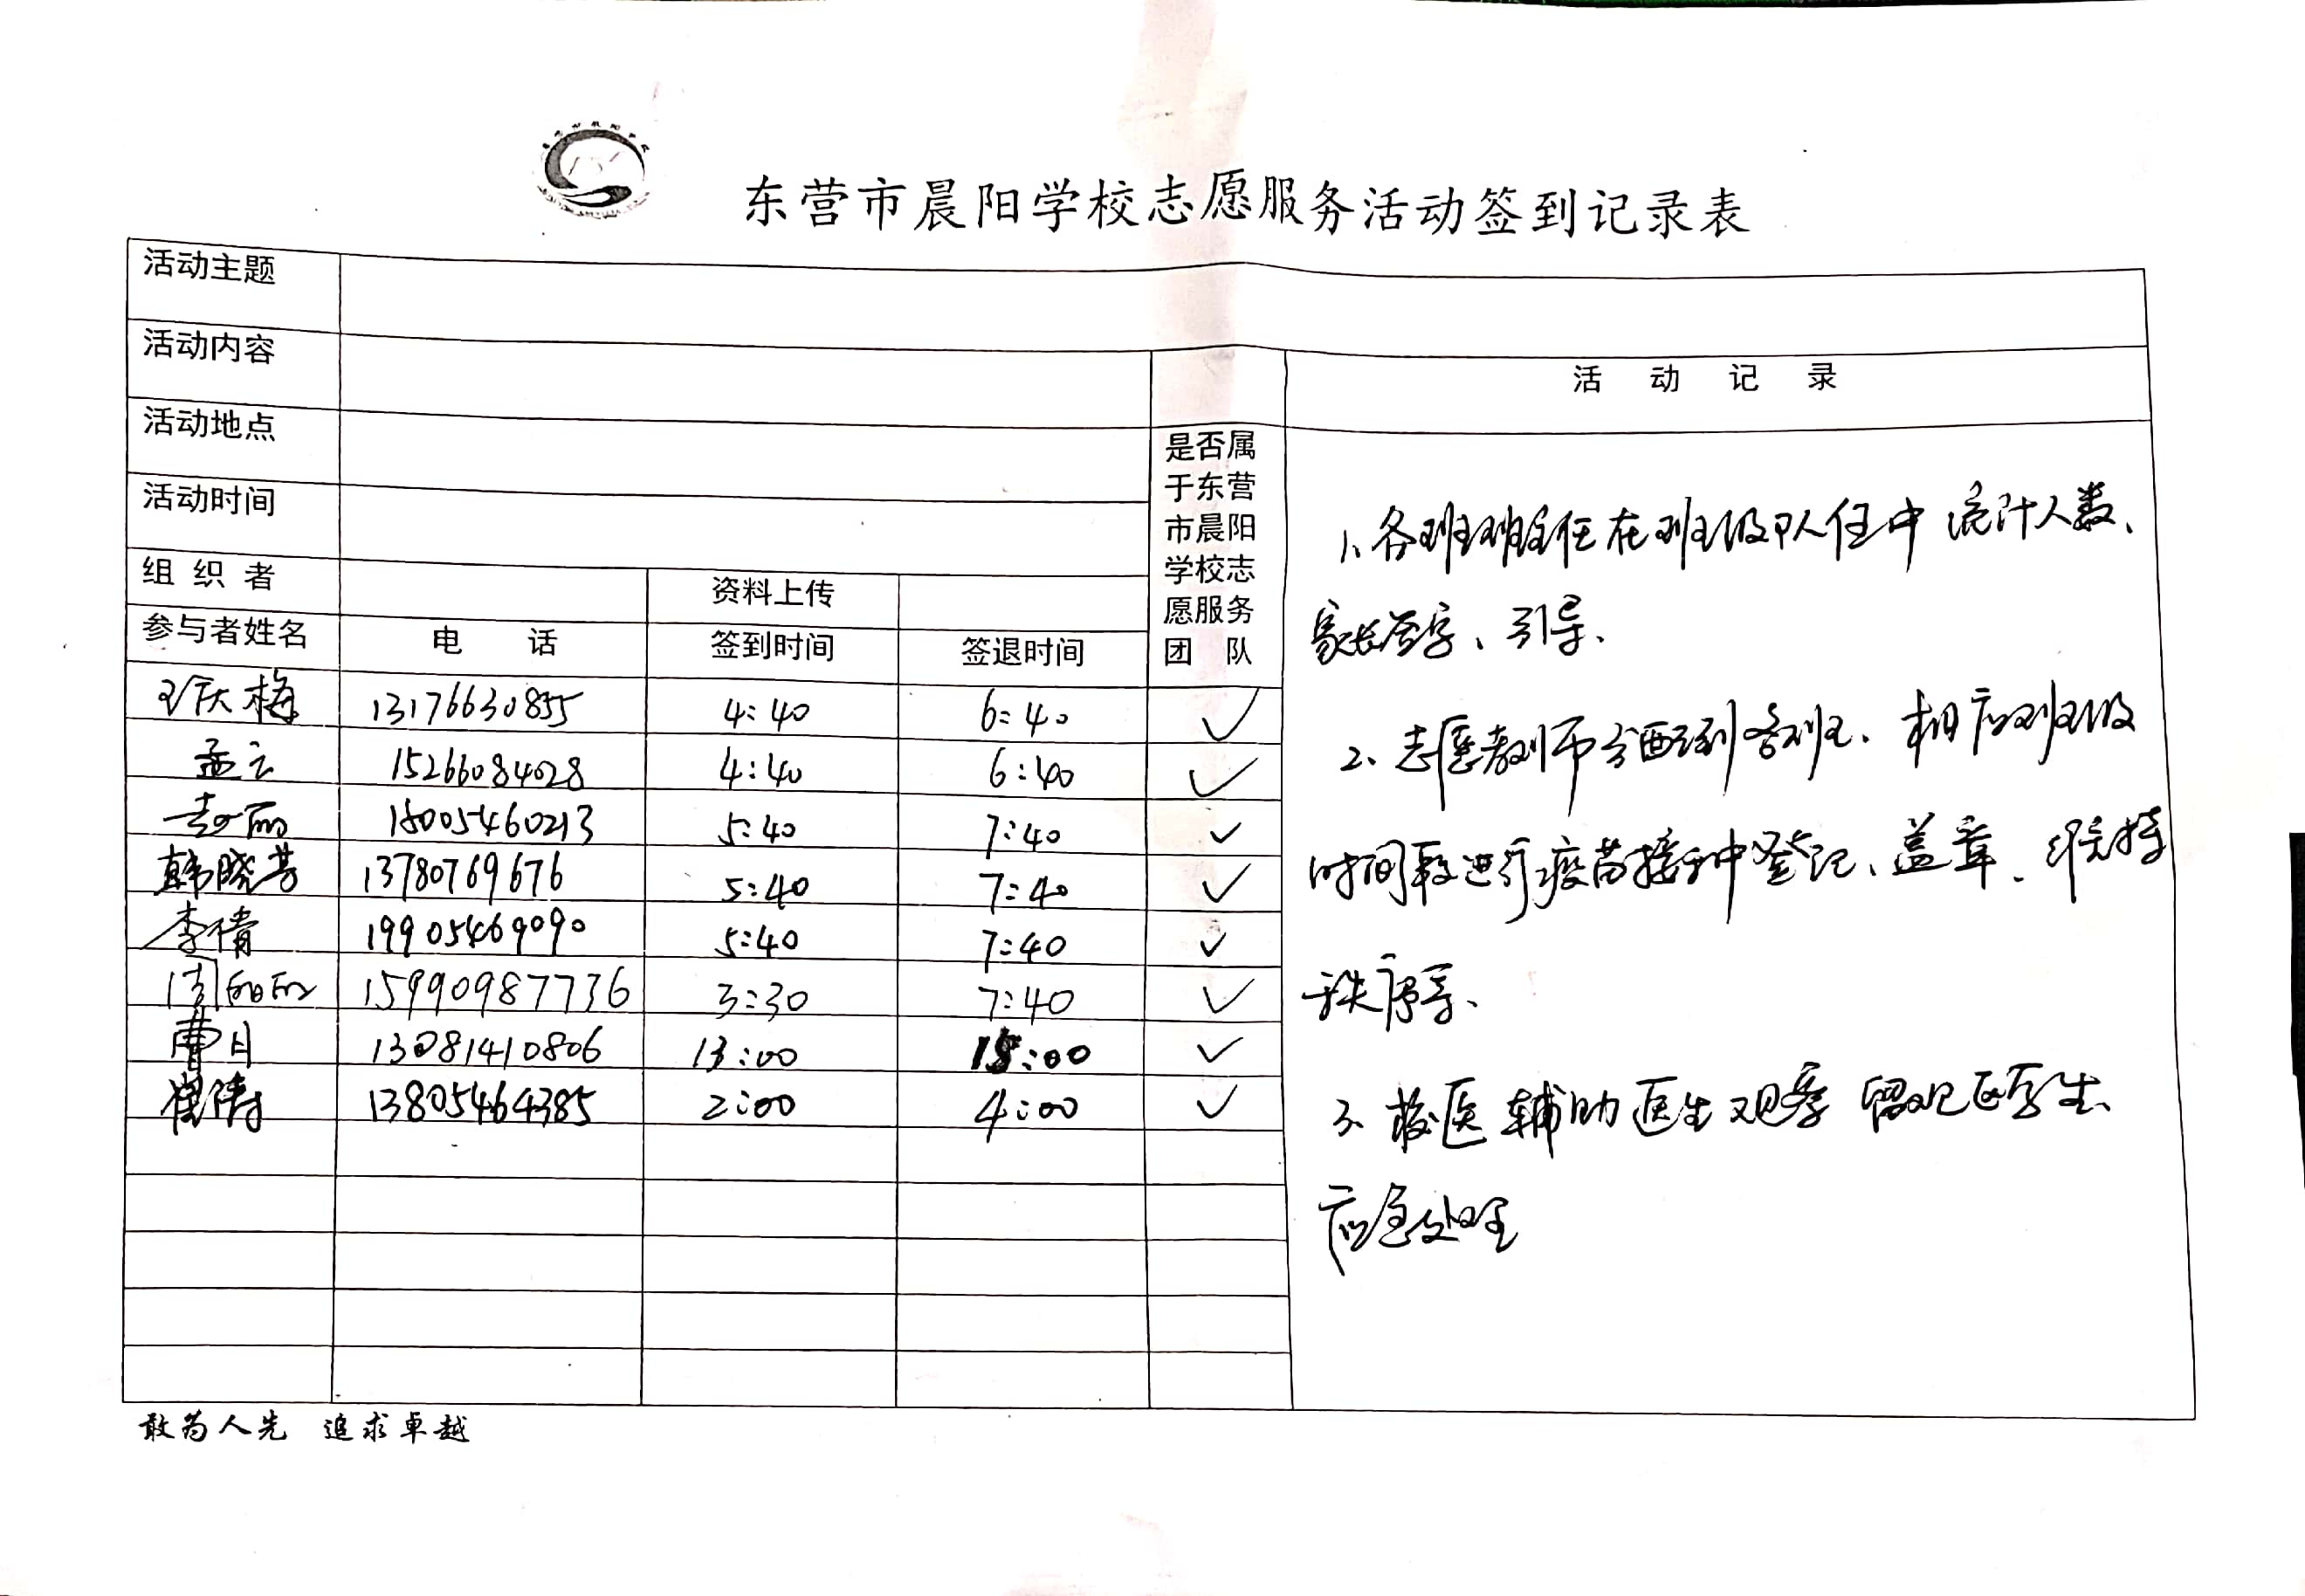 东营市晨阳学校志愿服务活动签到记录表
活动主题
活动内容
活动记录
活动地点
活动时间
组织者
资料上传
参与者姓名 电话 签到时间 签退时间
是否属
于东营
市晨阳
学校志
愿服务
团队
庆梅 13176630855 4:40 6:40 ✓
孟云 15266084028 4:40 6:40 ✓
丽 18005460213 5:40 7:40 ✓
韩晓芳 13780769676 5:40 7:40 ✓
李倩 19905469090 5:40 7:40 ✓
周 15990987736 3:30 7:40 ✓
曹日 13081410806 13:00 15:00 ✓
崔涛 13805464385 2:00 4:00 ✓
1、各班班主任在班级队伍中统计人数、
家长签字、引导、
2、志愿教师分配到各班、相应班级
时间段进行疫苗接种登记、盖章、维持
秩序等、
3、校医辅助医生观察留观区学生、
应急处理
敢为人先 追求卓越